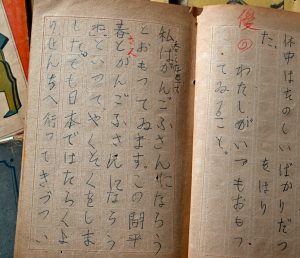 休中はたのしいばかりだつ
た。
をはり
後の わたしがいつもおもつ
てゐること。
大きくなつて
私はかんごふさんになろう
とおもつてゐます。この間平
春とかんごふさんになろう
さん
と いつて、やくそくをしま
したでも日本ではたらくよ
りせん方へ行つてきづつい